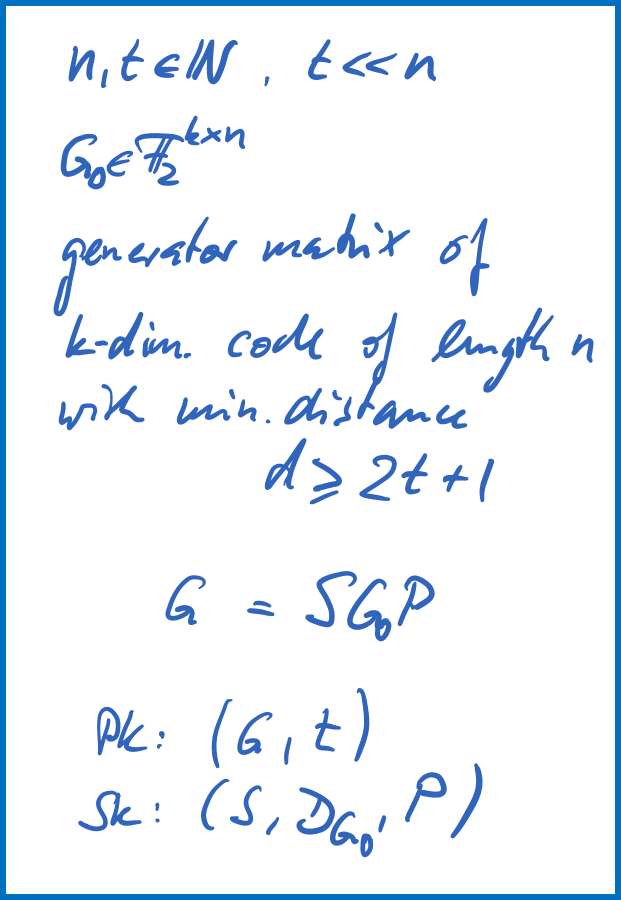 n, t ∈ ℕ, t << n
G₀ ∈ 𝔽₂^{k×n}
generator matrix of
k-dim. code of length n
with min. distance
d ≥ 2t + 1
G = SG₀P
Pk: (G, t)
Sk: (S, D_{G₀}, P)